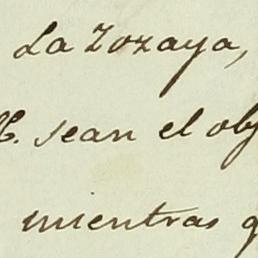 La Zozaya,
sean el obj
mientras q